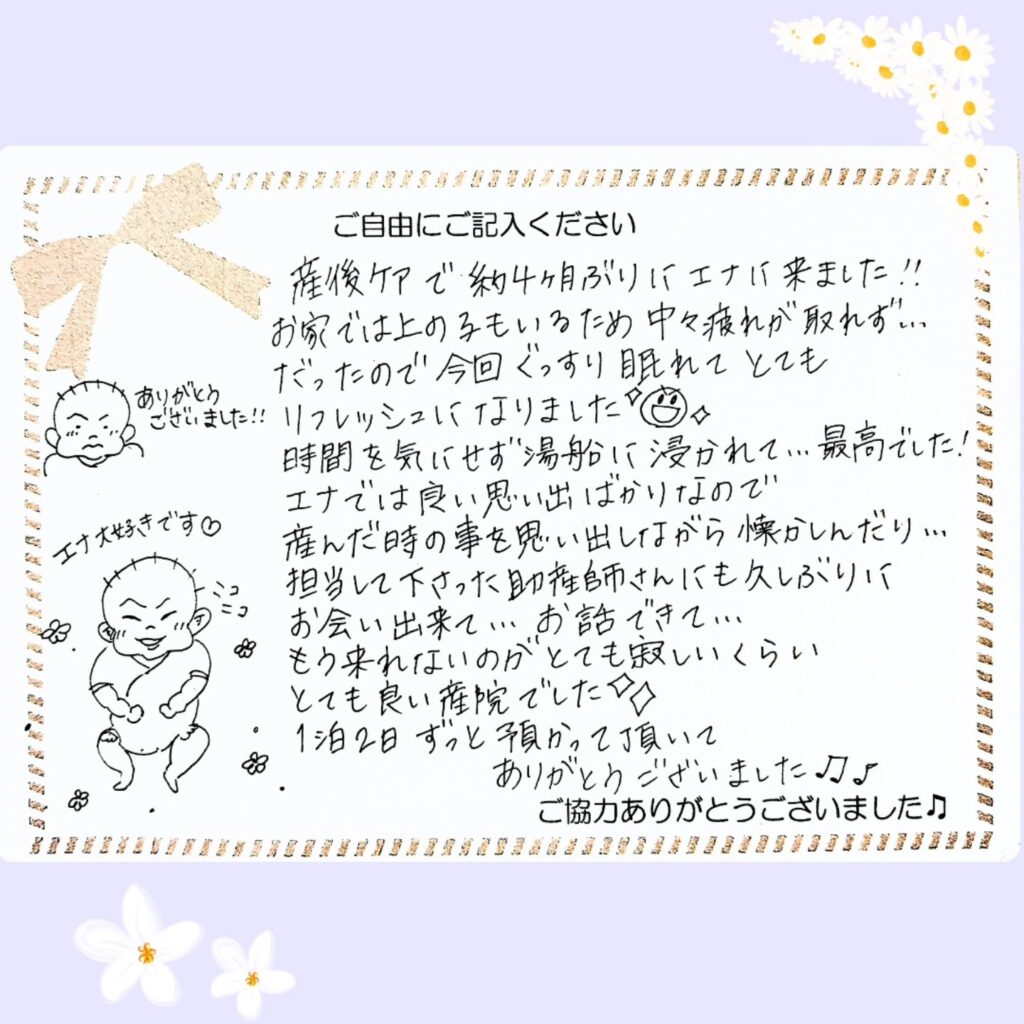 ご自由にご記入ください
産後ケアで約4ヶ月ぶりにエナに来ました!!
お家では上の子もいるため中々疲れが取れず…
だったので今回ぐっすり眠れてとても
リフレッシュになりました
時間を気にせず湯船に浸かれて…最高でした!
エナでは良い思い出ばかりなので
産んだ時の事を思い出しながら懐かしんだり…
担当して下さった助産師さんにも久しぶりに
お会い出来て…お話できて…
もう来れないのがとても寂しいくらい
とても良い産院でした
1泊2日ずっと預かって頂いて
ありがとうございました♫♪
ご協力ありがとうございました♫
ありがとう
ございました!!
エナ大好きです♡
ニコ
ニコ